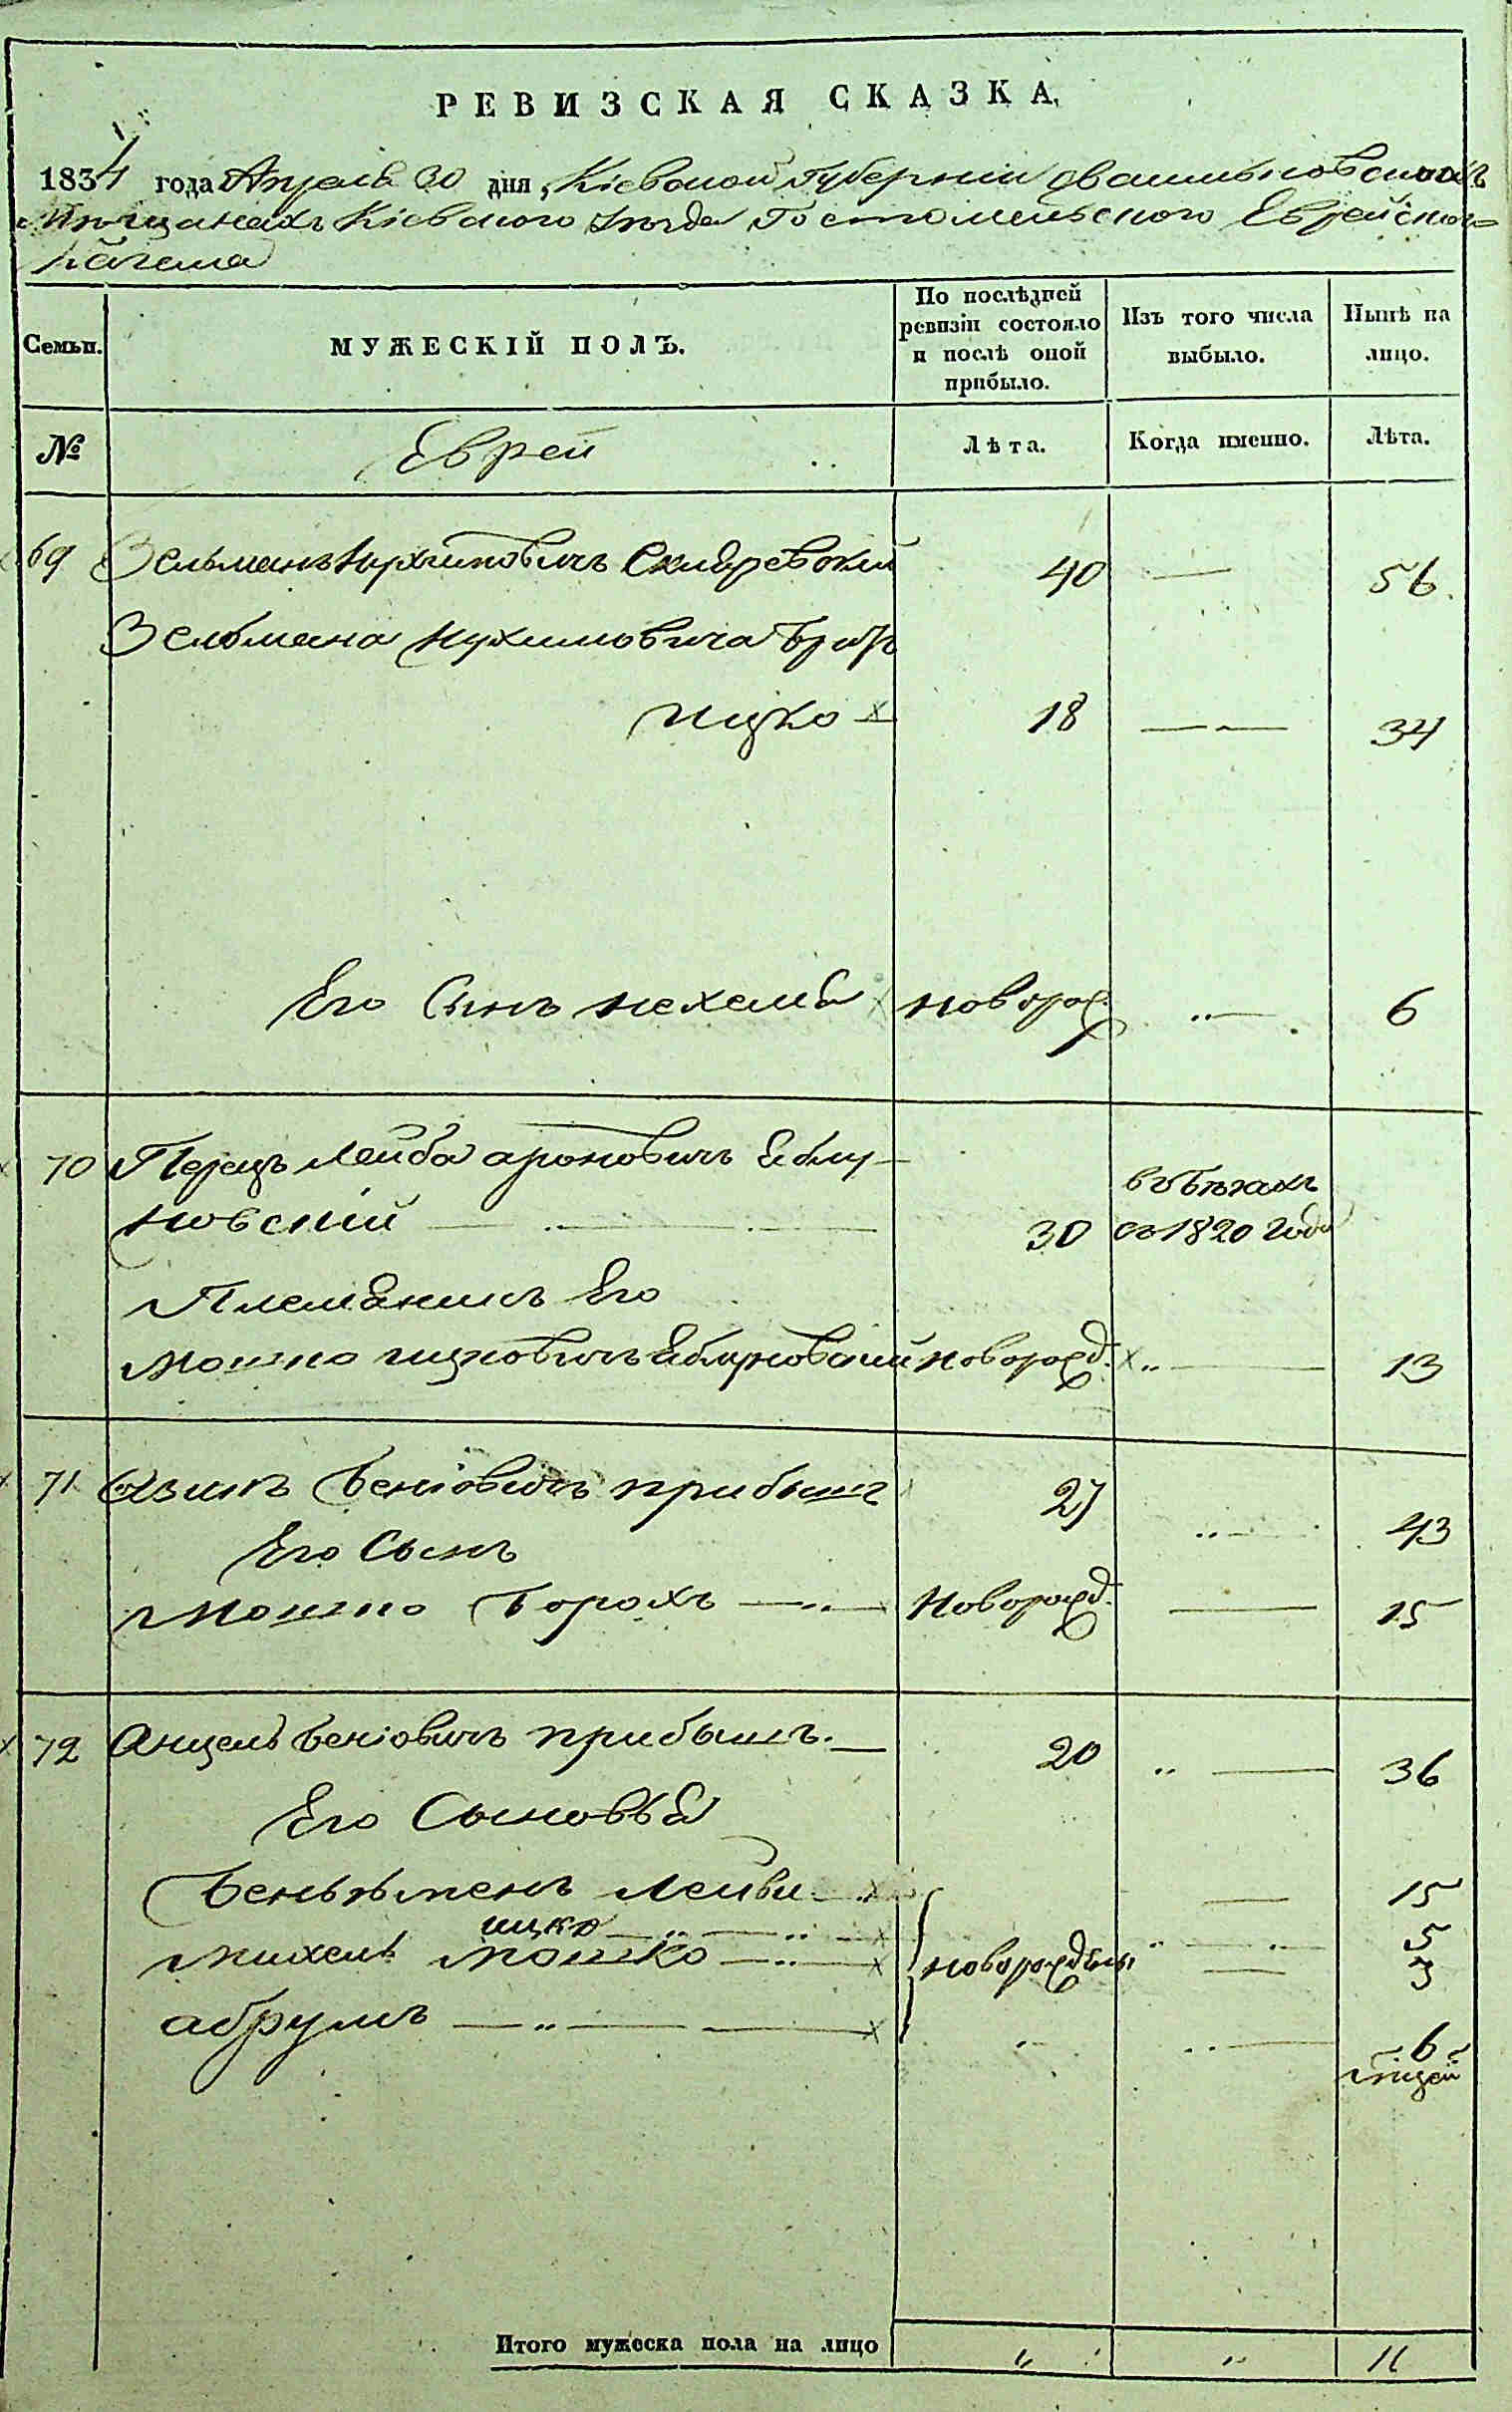 РЕВИЗСКАЯ СКАЗКА,
1834 года Апреля 30 дня, Кіевской Губерніи
Мѣщанахъ Кіевского Уезда Гостомельского Еврейского
Кагала
Семьи.
МУЖЕСКІЙ ПОЛЪ.
По послѣдней ревизіи состояло и послѣ оной прибыло.
Изъ того числа выбыло.
Нынѣ на лицо.
№
Еврей
Лѣта.
Когда именно.
Лѣта.
69 Зельманъ Нухимовичъ 40 — 56.
Зельмана Нухимовича братъ
Ицко 18 — — 34
Его Сынъ Нехемя новорож. „— 6
70 Перецъ Лейба Ароновичъ Яблу-
новский — „ — „ — 30 въ бѣгахъ съ 1820 года
Племянникъ Его
Мошко Ицковичъ Яблуновский новорожд. „ — 13
71 Азикъ Беніовичъ прибылъ 27 „ — 43
Его Сынъ
Мошко Борохъ — „ — Новорожд. — 15
72 Анцель Беніовичъ прибылъ. — 20 „ — 36
Его Сыновья
Беньяменъ Лейви — — 15
ицко — „ — „ — „ — „ — 5
Михель Мошко — „ — новорожденны — 3
абрумъ — „ — — „ „ — 6
мѣсяцей
Итого мужеска пола на лицо „ „ 11